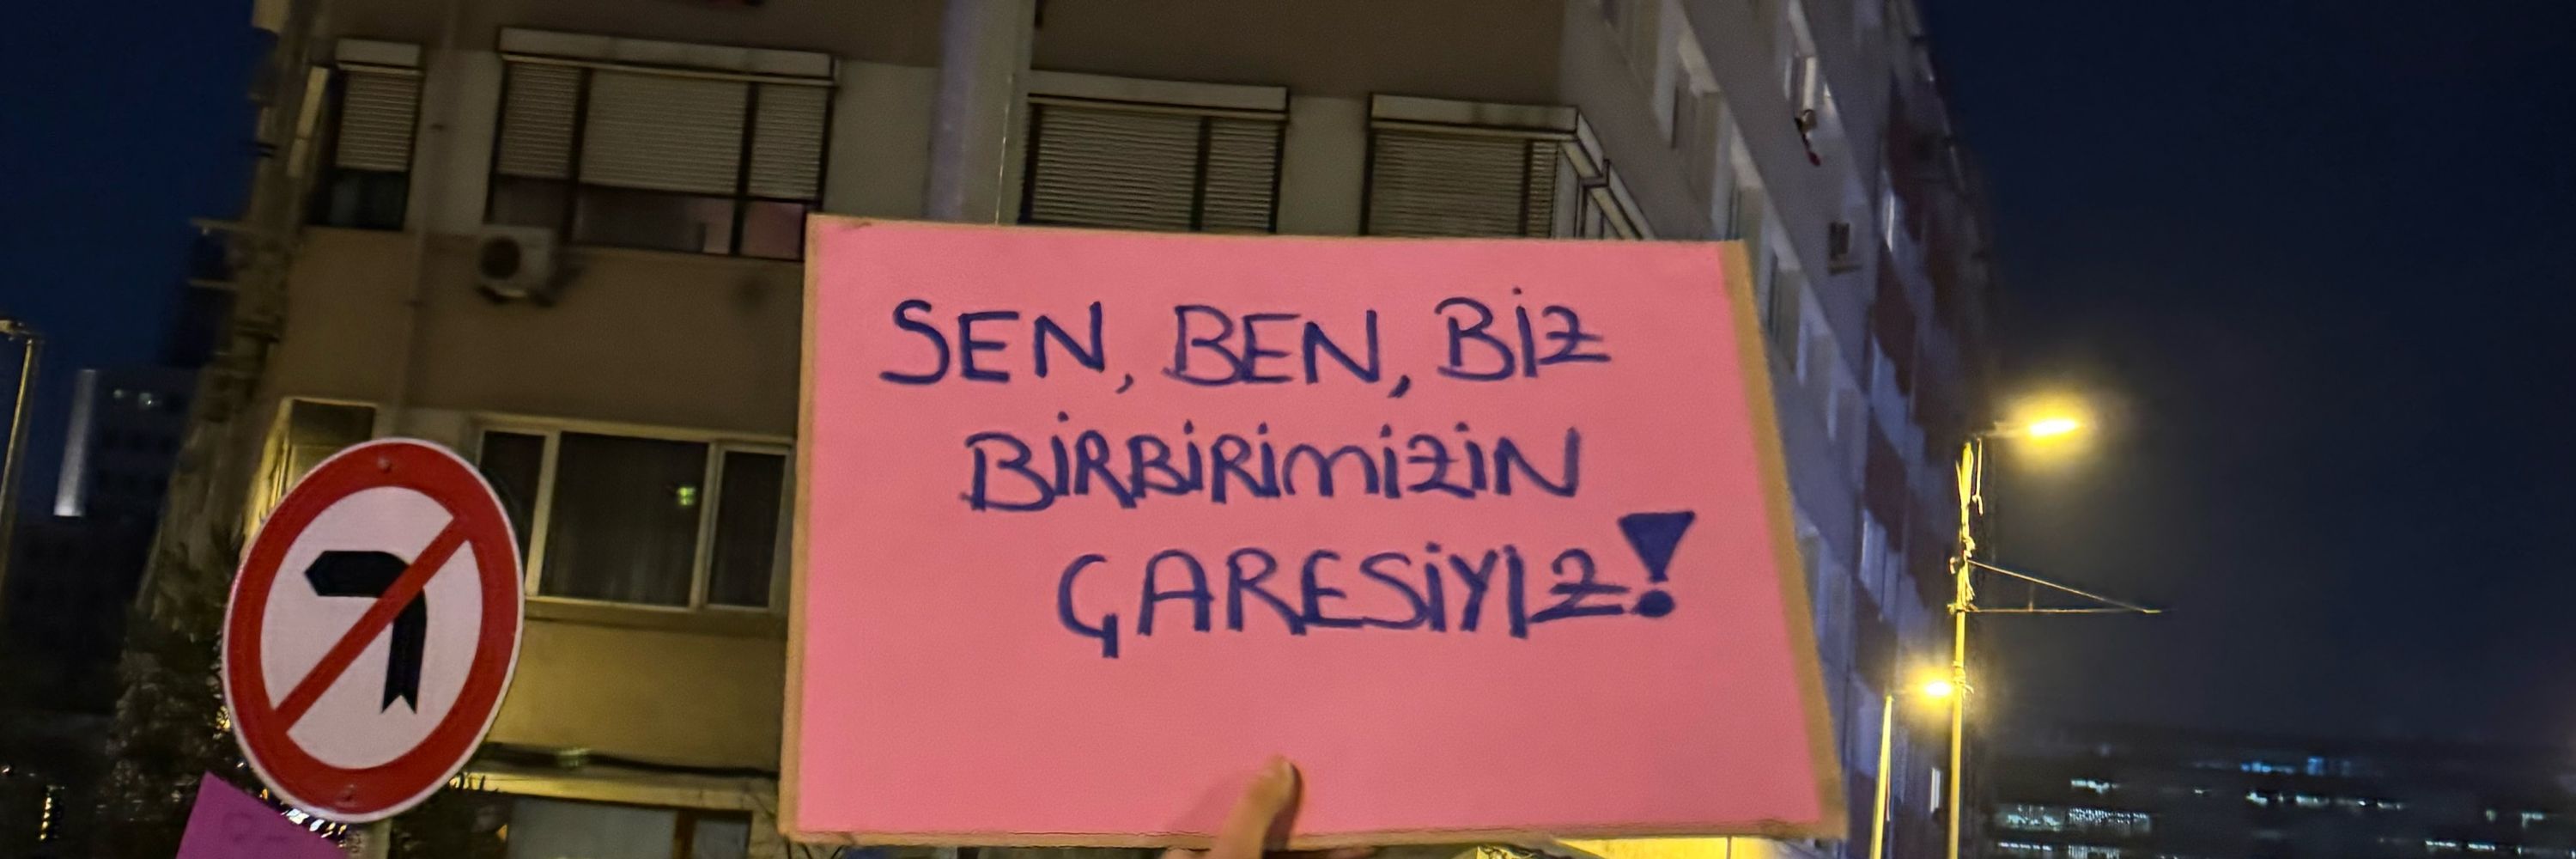 SEN, BEN, BİZ
BİRBİRİMİZİN
ÇARESİYİZ!